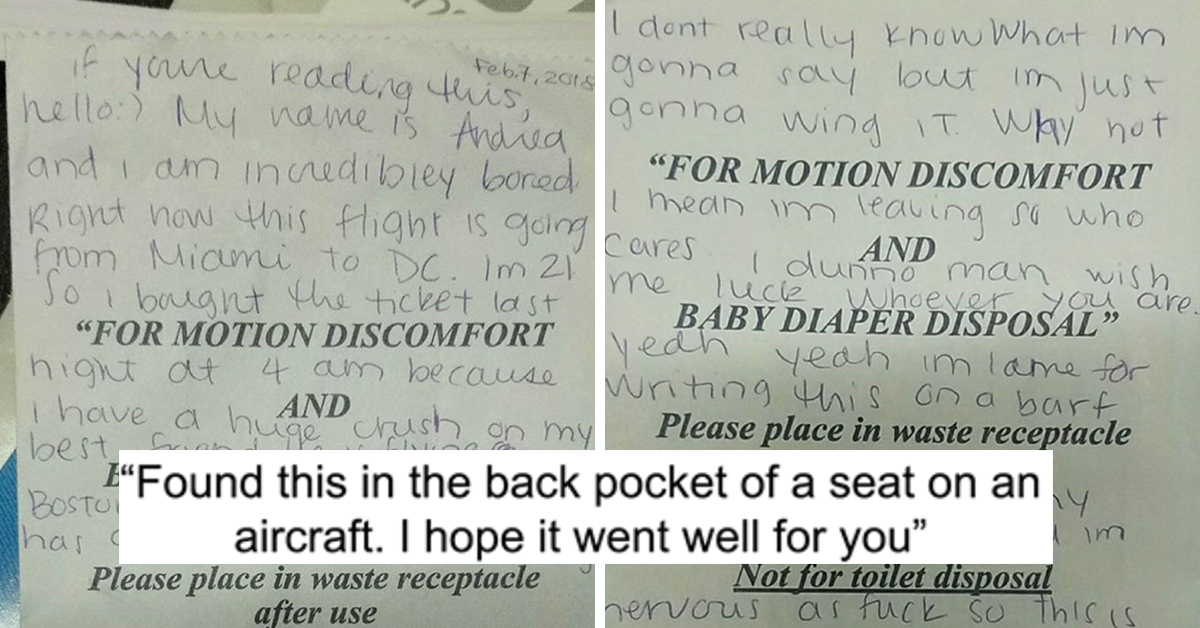 Feb.7, 2018
if youre reading this,
hello:) My name is Andrea
and i am incredibley bored
Right now this flight is going
from Miami to DC. Im 21
So i bought the ticket last
“FOR MOTION DISCOMFORT
night at 4 am because
AND
I have a huge crush on my
best
Boston
has
Please place in waste receptacle
after use
I dont really know What im
gonna say but im just
gonna wing IT. Why not
“FOR MOTION DISCOMFORT
I mean im leaving so who
cares
AND
I dunno man wish
me luck whoever you are.
BABY DIAPER DISPOSAL”
yeah yeah im lame for
writing this on a barf
Please place in waste receptacle
im
Not for toilet disposal
nervous as fuck so this is
“Found this in the back pocket of a seat on an
aircraft. I hope it went well for you”